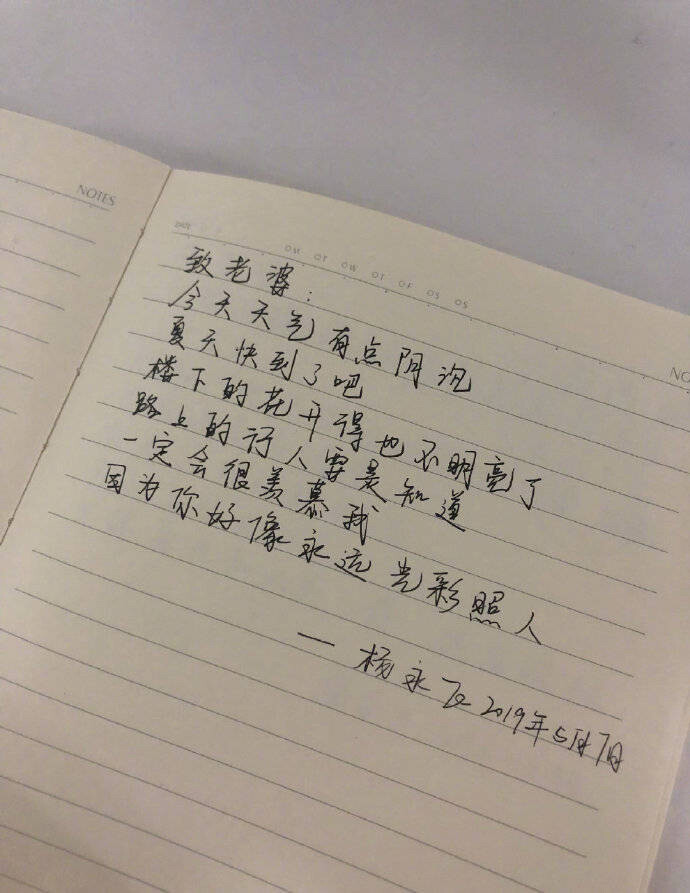 NOTES
DATE
OM OT OW OT OF OS OS
NO
致老婆：
今天天气有点阴沉
夏天快到了吧
楼下的花开得也不明亮了
路上的行人要是知道
一定会很羡慕我
因为你好像永远光彩照人
— 杨永 2019年5月7日